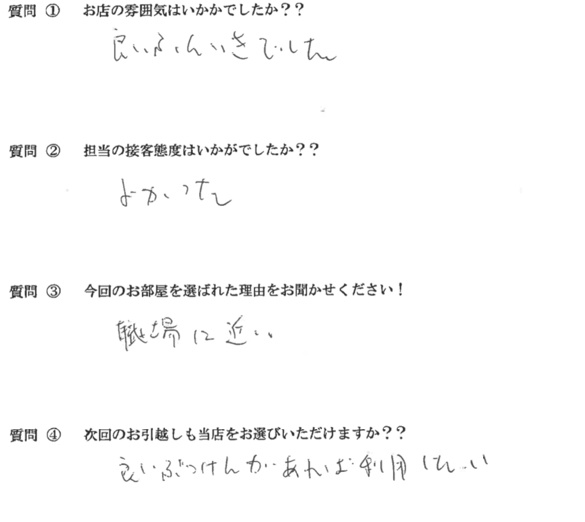 質問 ① お店の雰囲気はいかかでしたか??
良いふんいきでした
質問 ② 担当の接客態度はいかがでしたか??
よかった
質問 ③ 今回のお部屋を選ばれた理由をお聞かせください!
職場に近い。
質問 ④ 次回のお引越しも当店をお選びいただけますか??
良いぶっけんがあれば利用したい